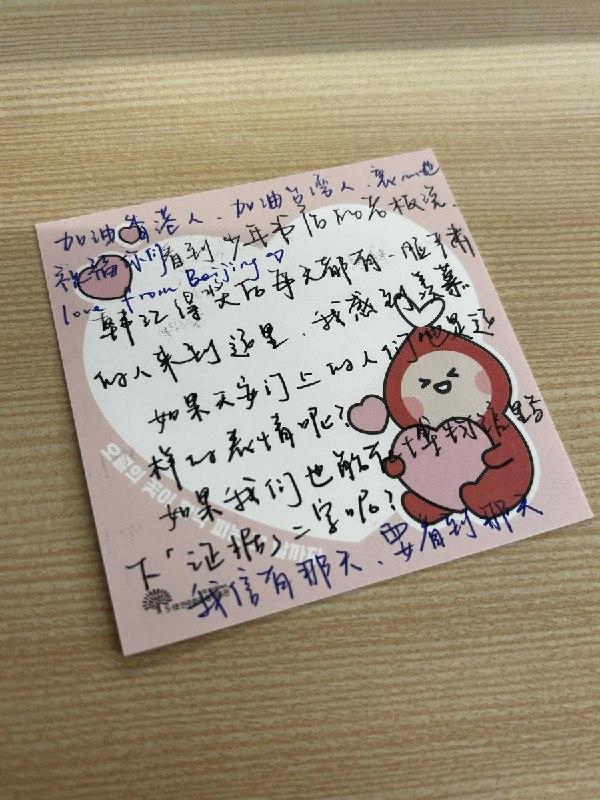 加油香港人、加油台湾人、衷心地
祝福你们
love from Beijing
看到少年书店的老板说,
韩江得奖后每天都有一脸严肃
的人来到这里. 我感到羡慕
如果天安门上的人们也是这
样的表情呢?
如果我们也能在博物馆里写
下「证据」二字呢?
我信有那天、要看到那天
오월의 꽃이